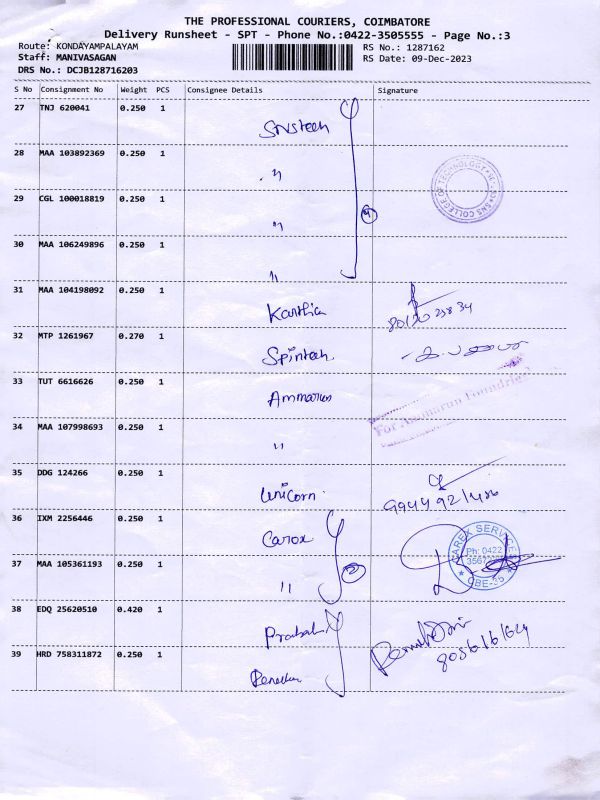 THE PROFESSIONAL COURIERS, COIMBATORE
Delivery Runsheet - SPT - Phone No.:0422-3505555 - Page No.:3
Route: KONDAYAMPALAYAM
Staff: MANIVASAGAN
DRS No.: DCJB128716203
RS No.: 1287162
RS Date: 09-Dec-2023
S No Consignment No Weight PCS Consignee Details Signature
27 TNJ 620041 0.250 1 SNStech
28 MAA 103892369 0.250 1 "
SNS COLLEGE OF TECHNOLOGY
29 CGL 100018819 0.250 1 "
4
30 MAA 106249896 0.250 1 "
31 MAA 104198092 0.250 1 Karthic
32 MTP 1261967 0.270 1 Spintech
33 TUT 6616626 0.250 1 Ammarun
For Ammarun Foundries
34 MAA 107998693 0.250 1 "
35 DDG 124266 0.250 1 Unicorn
36 IXM 2256446 0.250 1 Carox
CAREX SERVICES
Ph: 0422
CBE-35
37 MAA 105361193 0.250 1 "
2
38 EDQ 25620510 0.420 1
39 HRD 758311872 0.250 1